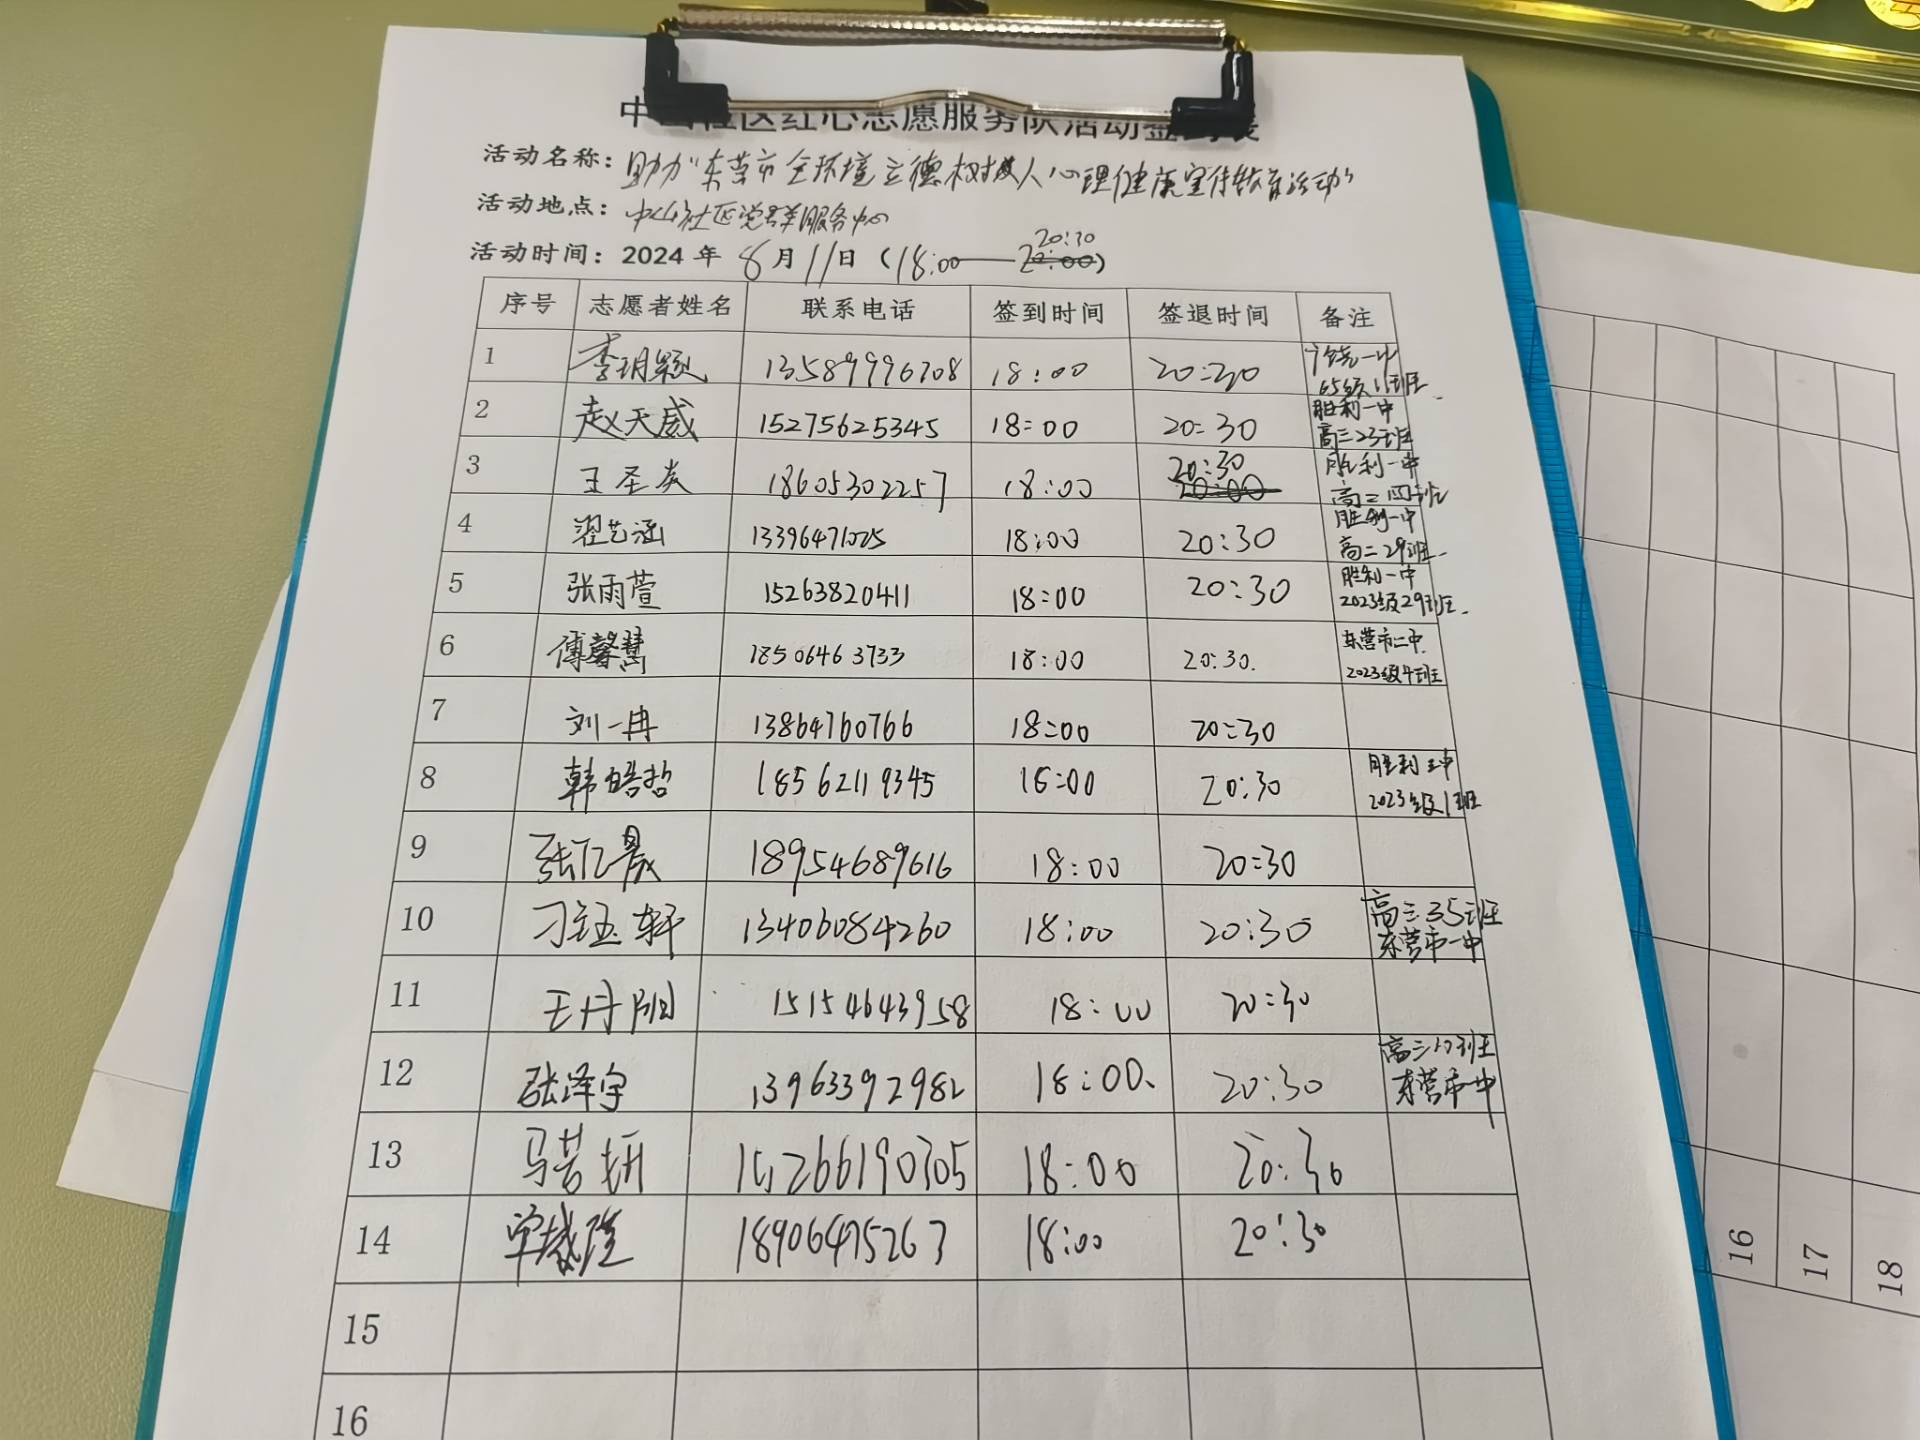 中山社区红心志愿服务队活动签到表
活动名称：助力"东营市全环境立德树人心理健康宣传教育活动"
活动地点：中山社区党群服务中心
活动时间：2024年8月11日（18:00——20:30）
序号 志愿者姓名 联系电话 签到时间 签退时间 备注
1 李玥颖 13589996708 18:00 20:30
65级11班
2 赵天威 15275625345 18:00 20:30 胜利一中
高三23班
3 王圣炎 18605302257 18:00 20:30 胜利一中
20:00 高三四班
4 翟艺涵 13396471025 18:00 20:30 胜利一中
高二29班
5 张雨萱 15263820411 18:00 20:30 胜利一中
2023级29班
6 傅馨慧 18506463733 18:00 20:30. 东营市二中
2023级4班
7 刘一冉 13864760766 18:00 20:30
8 韩皓哲 18562119345 18:00 20:30 胜利三中
2023级1班
9 张亿晟 18954689616 18:00 20:30
10 刁钰轩 13406084260 18:00 20:30 高三35班
东营市一中
11 王丹阳 15154643958 18:00 20:30
12 张泽宇 13963392982 18:00 20:30 高三17班
东营市一中
13 马若妍 15266190705 18:00 20:30
14 18906475263 18:00 20:30
15
16
16
17
18